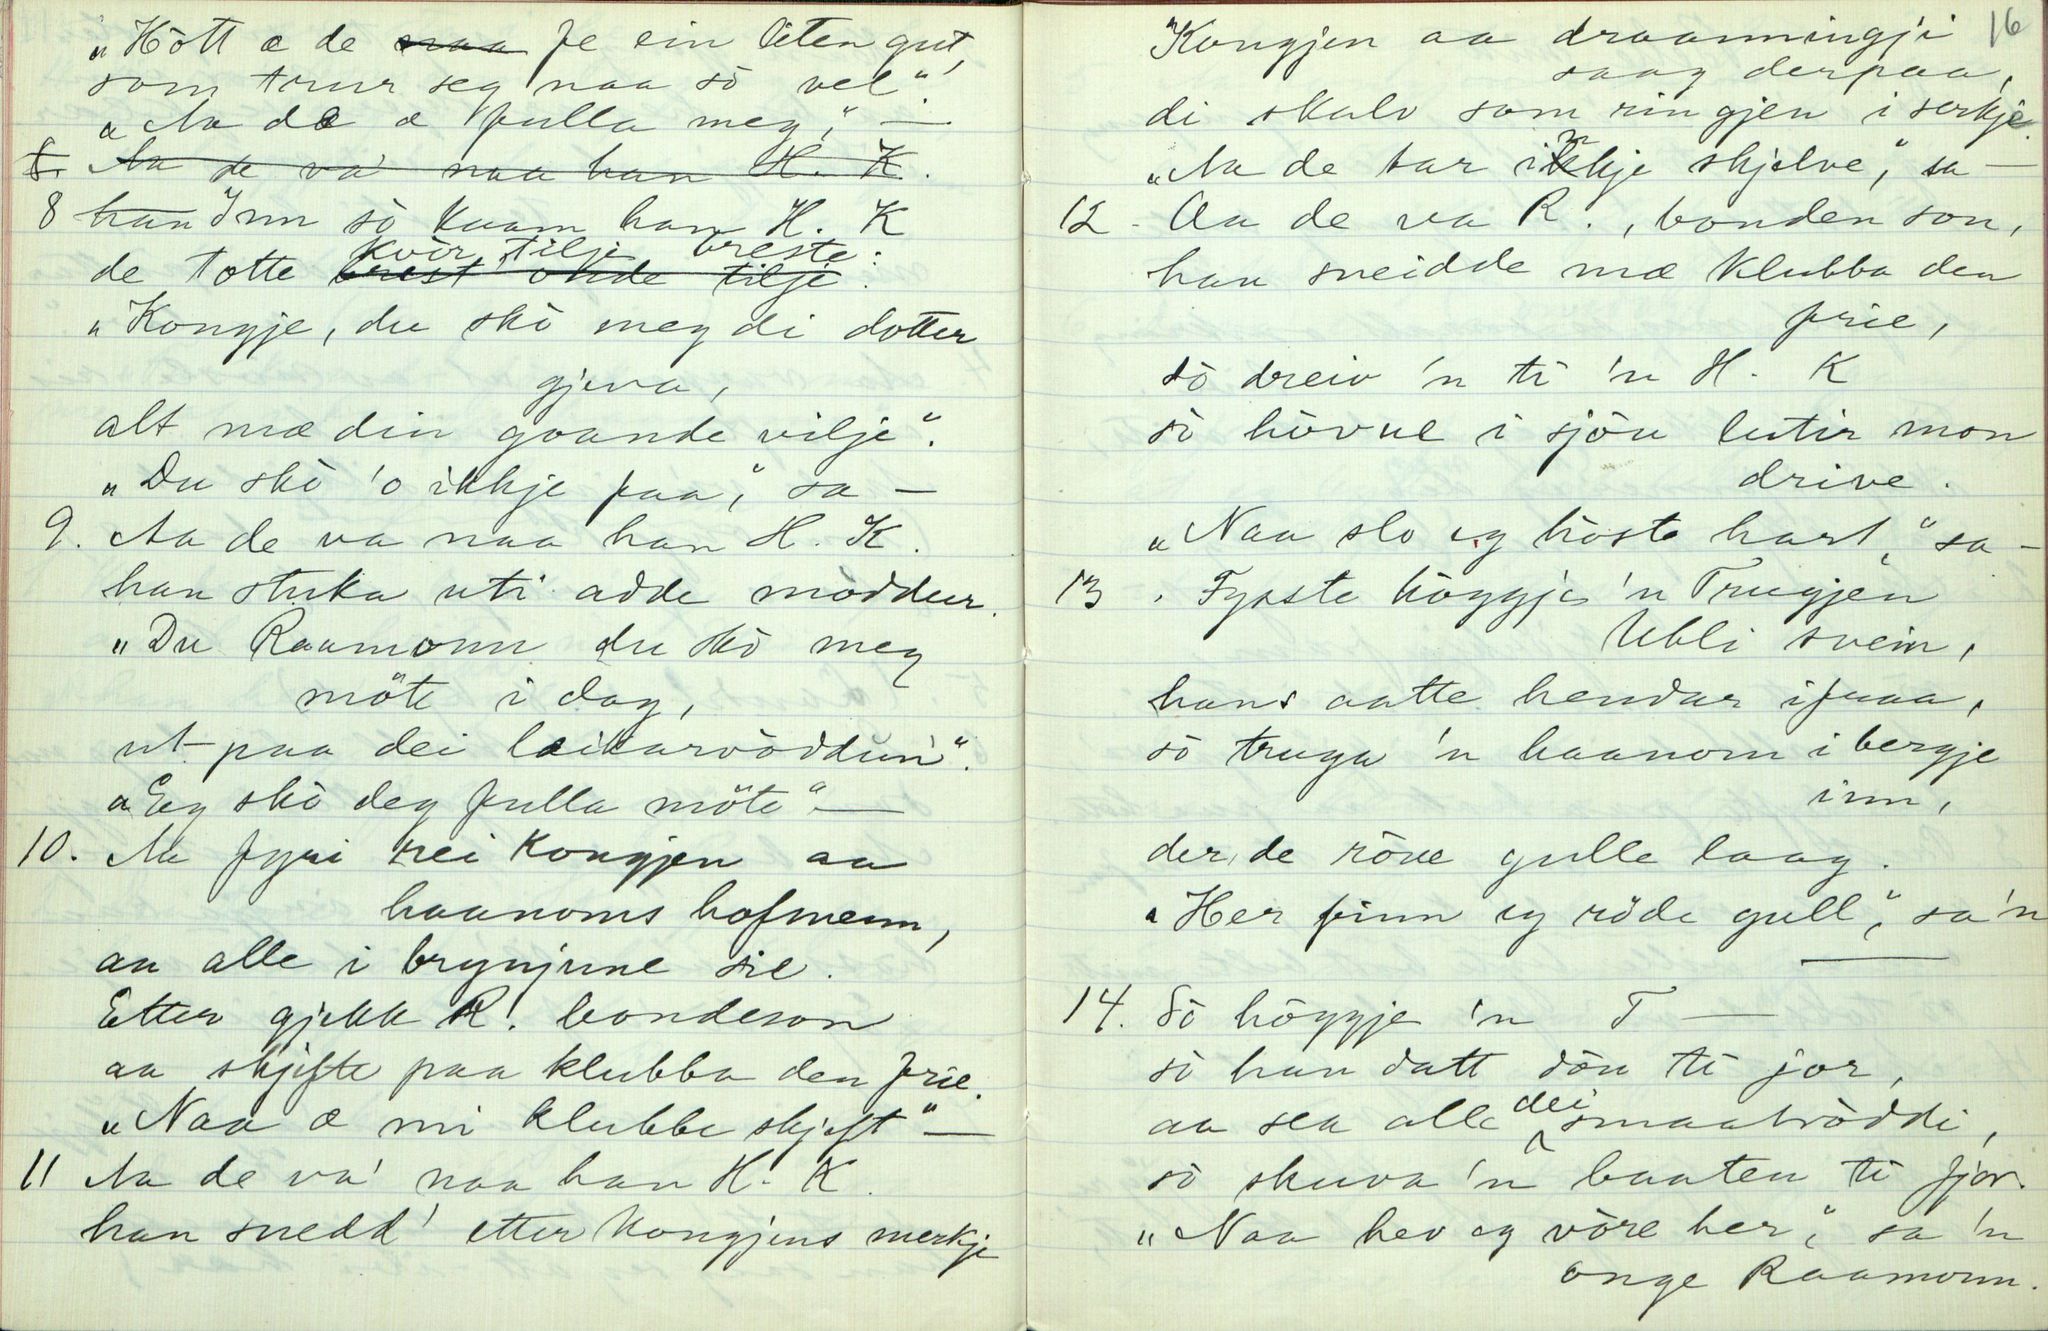 "Hött æ de naa fe ein liten gut,
som trur seg naa sò vel".
"Aa dæ æ fulla meg," —
8. Aa de va' naa han H. K.
8 han Inn sò kaam han H. K
kvòr tilje breste:
de totte brest onde tilje.
"Kongje, du skò meg di dotter
gjeva,
alt mæ din goande vilje".
"Du skò 'o ikkje faa," sa —
9. Aa de va naa han H. K.
han stuka uti adde mòddur.
"Du Raamonn du skò meg
möte i dag,
ut paa dei leikarvòddun".
"Eg skò deg fulla möte" —
10. Aa fyri rei Kongjen aa
haanoms hofmenn,
aa alle i brynjune sie.
Etter gjekk R. bondeson
aa skjefte paa klubba den frie.
"Naa æ mi klubbe skjeft" —
11 Aa de va' naa han H. K.
han snedd' etter kongjens merkje
16
Kongjen aa draanningji
saag derpaa,
di skalv som ringjen i serkje.
"Aa de tar inkje skjelve," sa —
12 - Aa de va R., bonden son,
han sneidde mæ klubba den
frie,
sò dreiv 'n ti 'n H. K
sò hòvue i sjön utir mon
drive.
"Naa slo eg höste hart," sa —
13 . Fyste höggje 'n Trugjen
Ubli svein,
hans aatte hendar ifraa,
sò truga 'n haanom i bergje
inn,
der de röue gulle laag.
"Her finn eg röde gull," sa 'n
14. Sò höggje 'n T —
sò han datt döu ti jor,
aa sea alle dei smaatròddi,
sò skuva 'n baaten ti fjor.
"Naa hev eg vòre her," sa 'n
onge Raamonn.